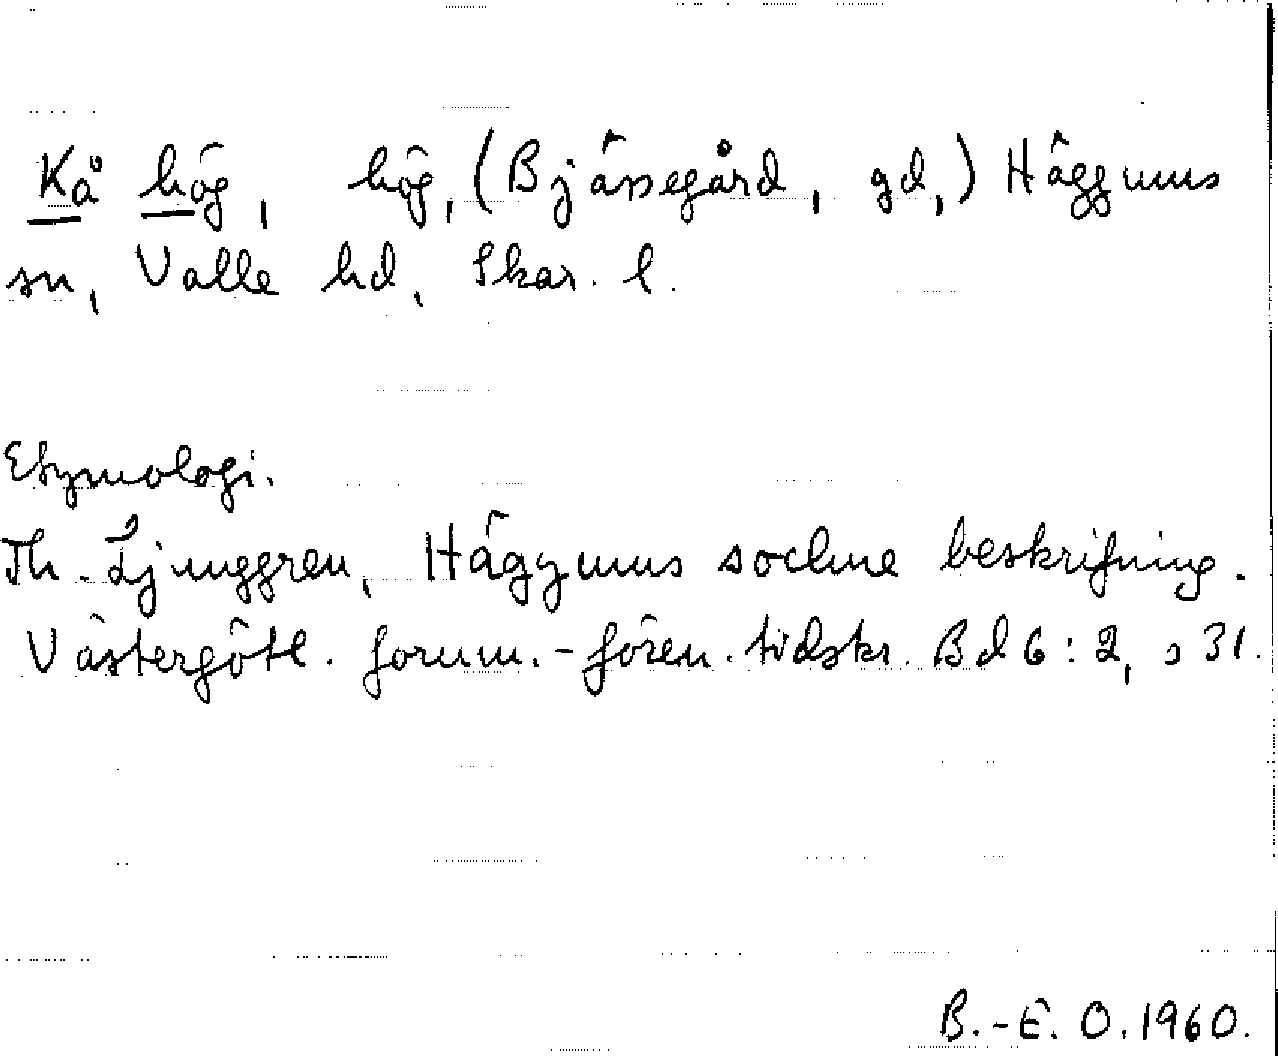 Kå hög, hög, (Bjässegård, gd,) Häggums
sn, Valle hd, Skar. l.
Etymologi.
Th. Ljunggren, Häggums sockne beskrifning.
Västergötl. fornm.-fören. tidskr. Bd 6: 2, s 31.
B.-E. O. 1960.